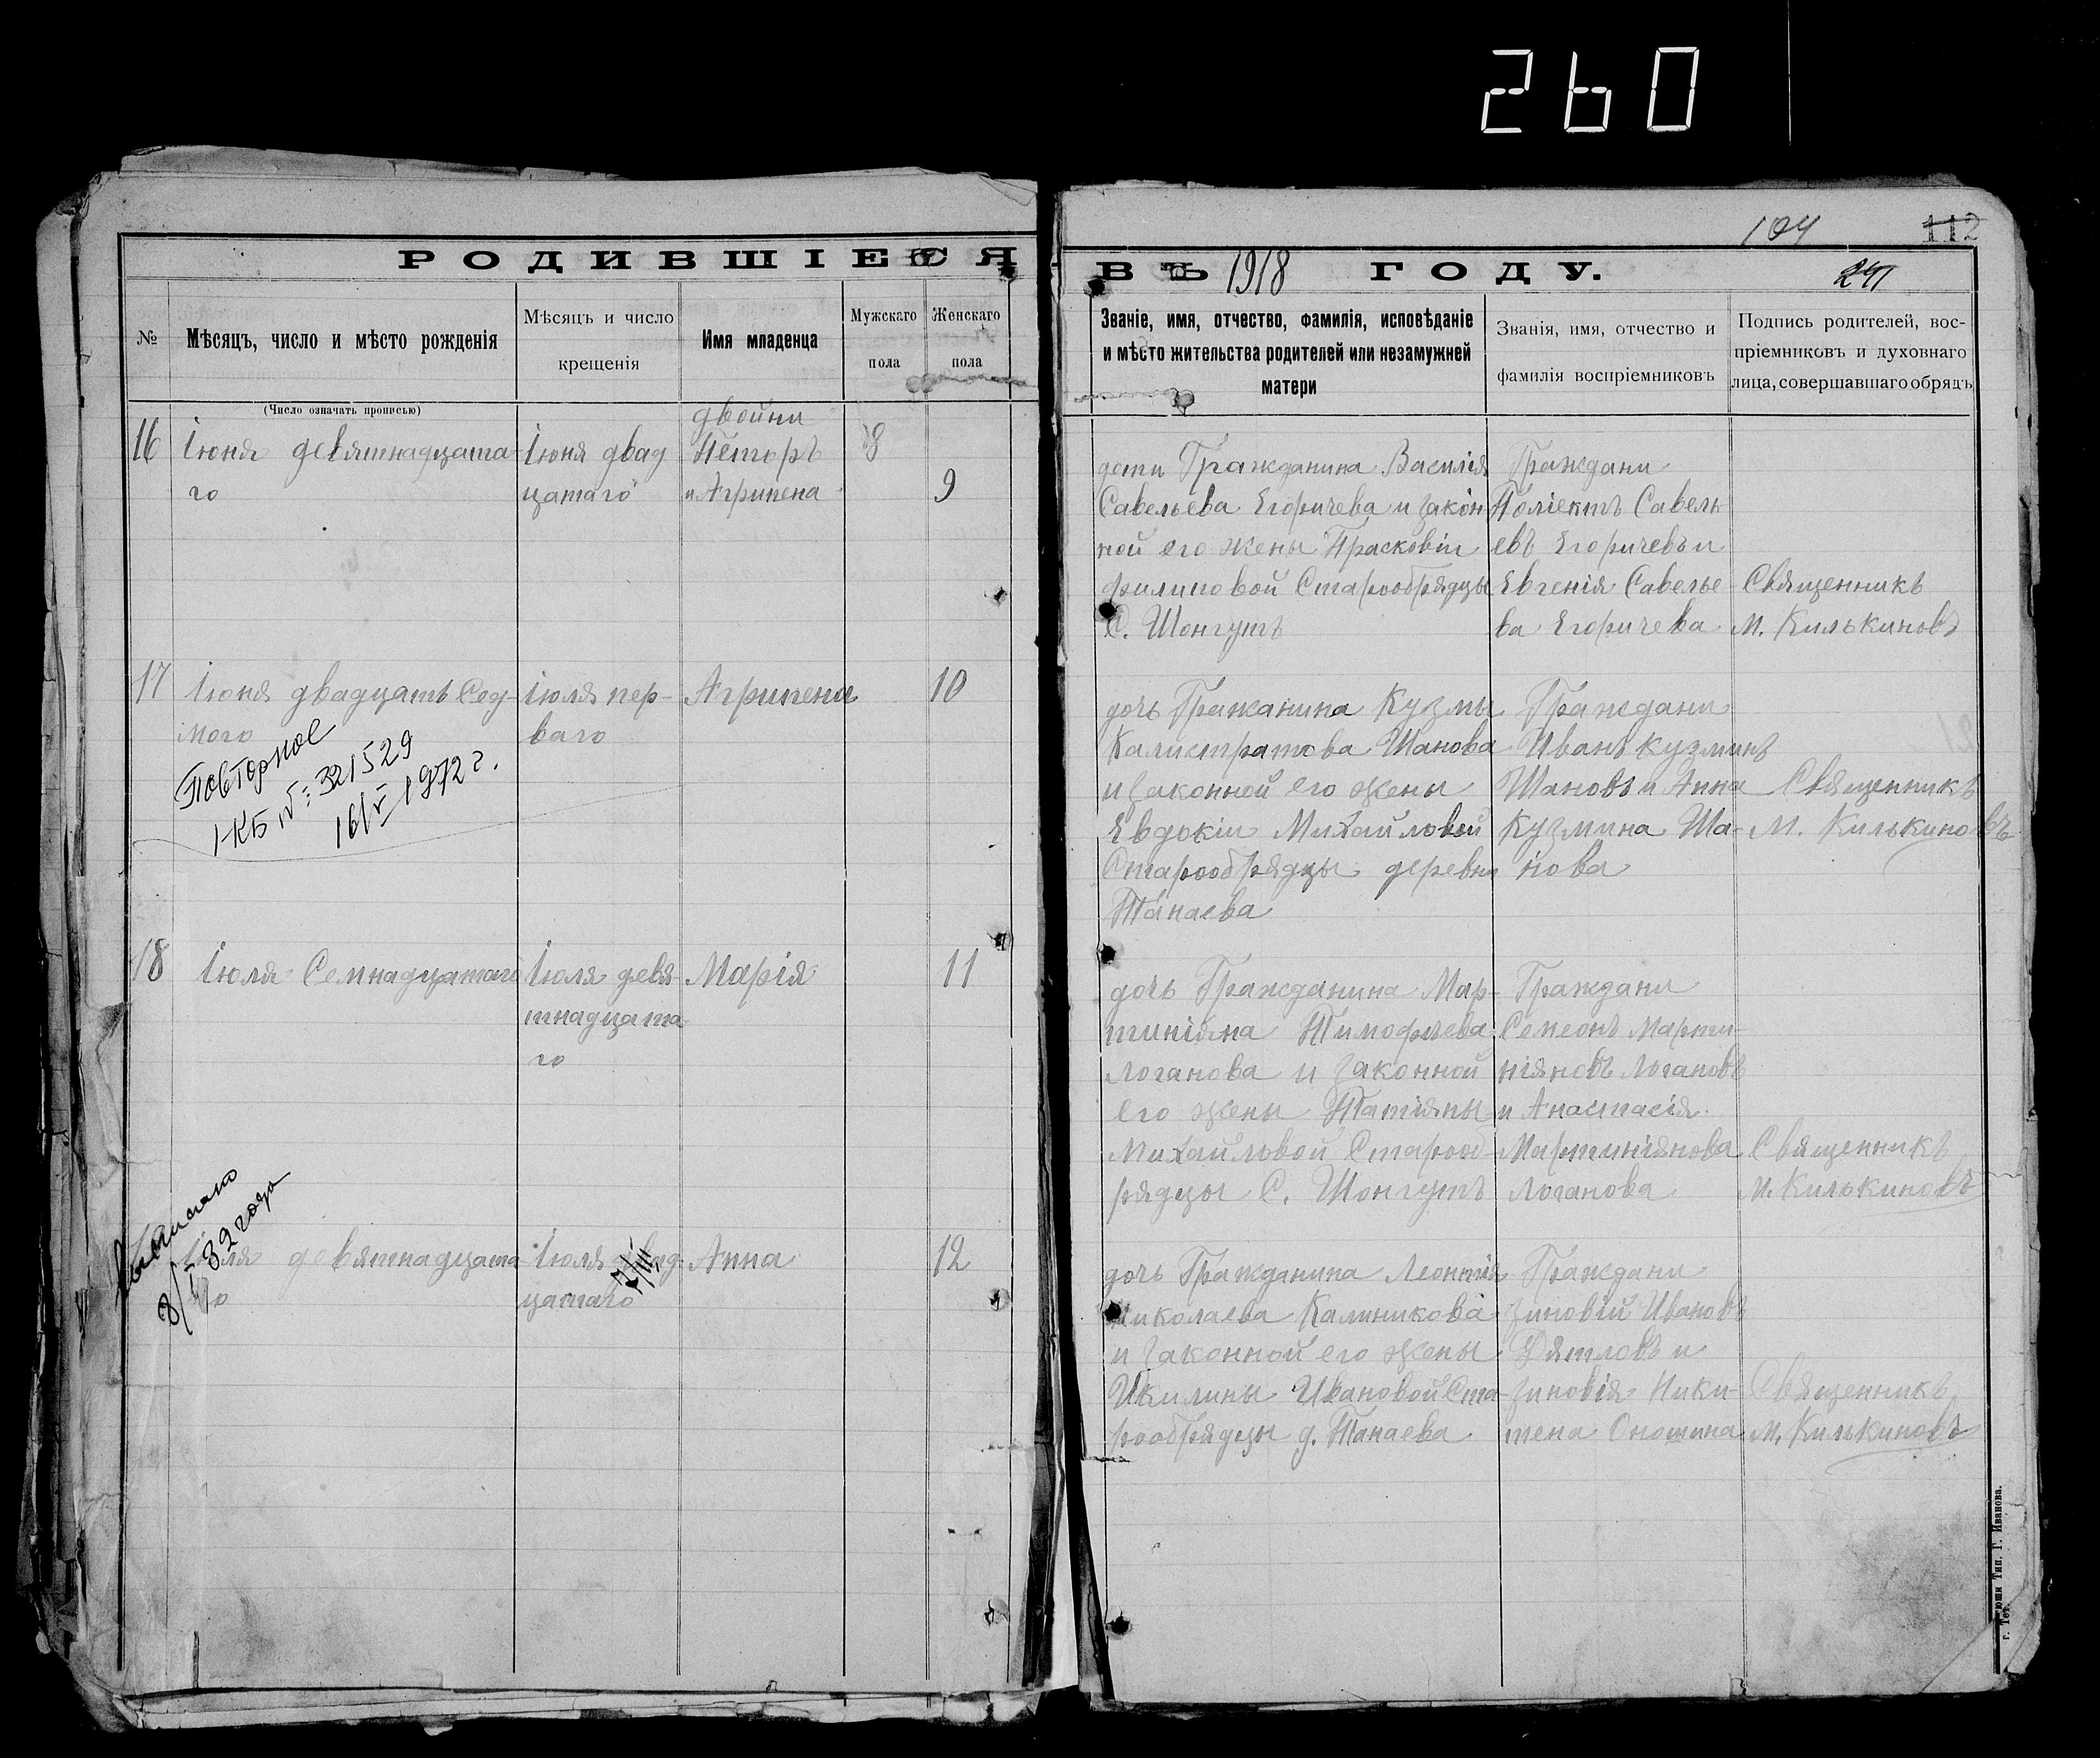 260
104
112
241
РОДИВШІЕСЯ
ВЪ 1918 ГОДУ.
№
Мѣсяцъ, число и мѣсто рожденія
Мѣсяцъ и число
крещенія
Имя младенца
Мужскаго
пола
Женскаго
пола
Званіе, имя, отчество, фамилія, исповѣданіе
и мѣсто жительства родителей или незамужней
матери
Званія, имя, отчество и
фамилія воспріемниковъ
Подпись родителей, вос-
пріемниковъ и духовнаго
лица, совершавшаго обрядъ
(Число означать прописью)
16
Іюня девятнадцата-
го
Іюня двад
цатаго
двойни
Петоръ
и Агрипена
8
9
дети Гражданина Василія
Савельева Егоричева и закон
ной его жены Прасковіи
филиповой Старообрядцы
С. Шонгутъ
Граждани
Поліектъ Савель
евъ Егоричевъ и
Евгенія Савелье-
ва Егоричева
Священникъ
М. Килькиновъ
17
Іюня двадцать Сед-
мого
Повторное
1-КБ № 321529
16/V 1972 г.
Іюля пер-
ваго
Агрипена
10
дочь Гражанина Кузмы
Калистратова Шанова
и законной его жены
Евдокіи Михайловой
Старообрядцы деревни
Танаева
Граждани
Иванъ Кузминъ
Шановъ и Анна
Кузмина Ша-
нова
Священникъ
М. Килькиновъ
18
Іюля Семнадцатаго
Іюля девя-
тнадцата-
го
Марія
11
дочь Гражданина Мар-
тиніяна Тимофѣева
Логанова и законной
его жены Татіяны
Михайловой Старооб
рядцы С. Шонгутъ
Граждани
Семеонъ Марти-
ніяновъ Логановъ
и Анастасія
Мартиніянова
Логанова
Священникъ
М. Килькиновъ
Выписано
32 года
Іюля девятнадцата
го
Іюля двад-
цатаго
7/III
Анна
12
дочь Гражданина Леонтія
Николаева Калиникова
и законной его жены
Икилины Ивановой Ста-
рообрядцы д. Танаева
Граждани
Зиновій Ивановъ
Дятловъ и
Зиновія Ники-
тена Оношина
Священникъ
М. Килькиновъ
Тип. Г. Иванова.